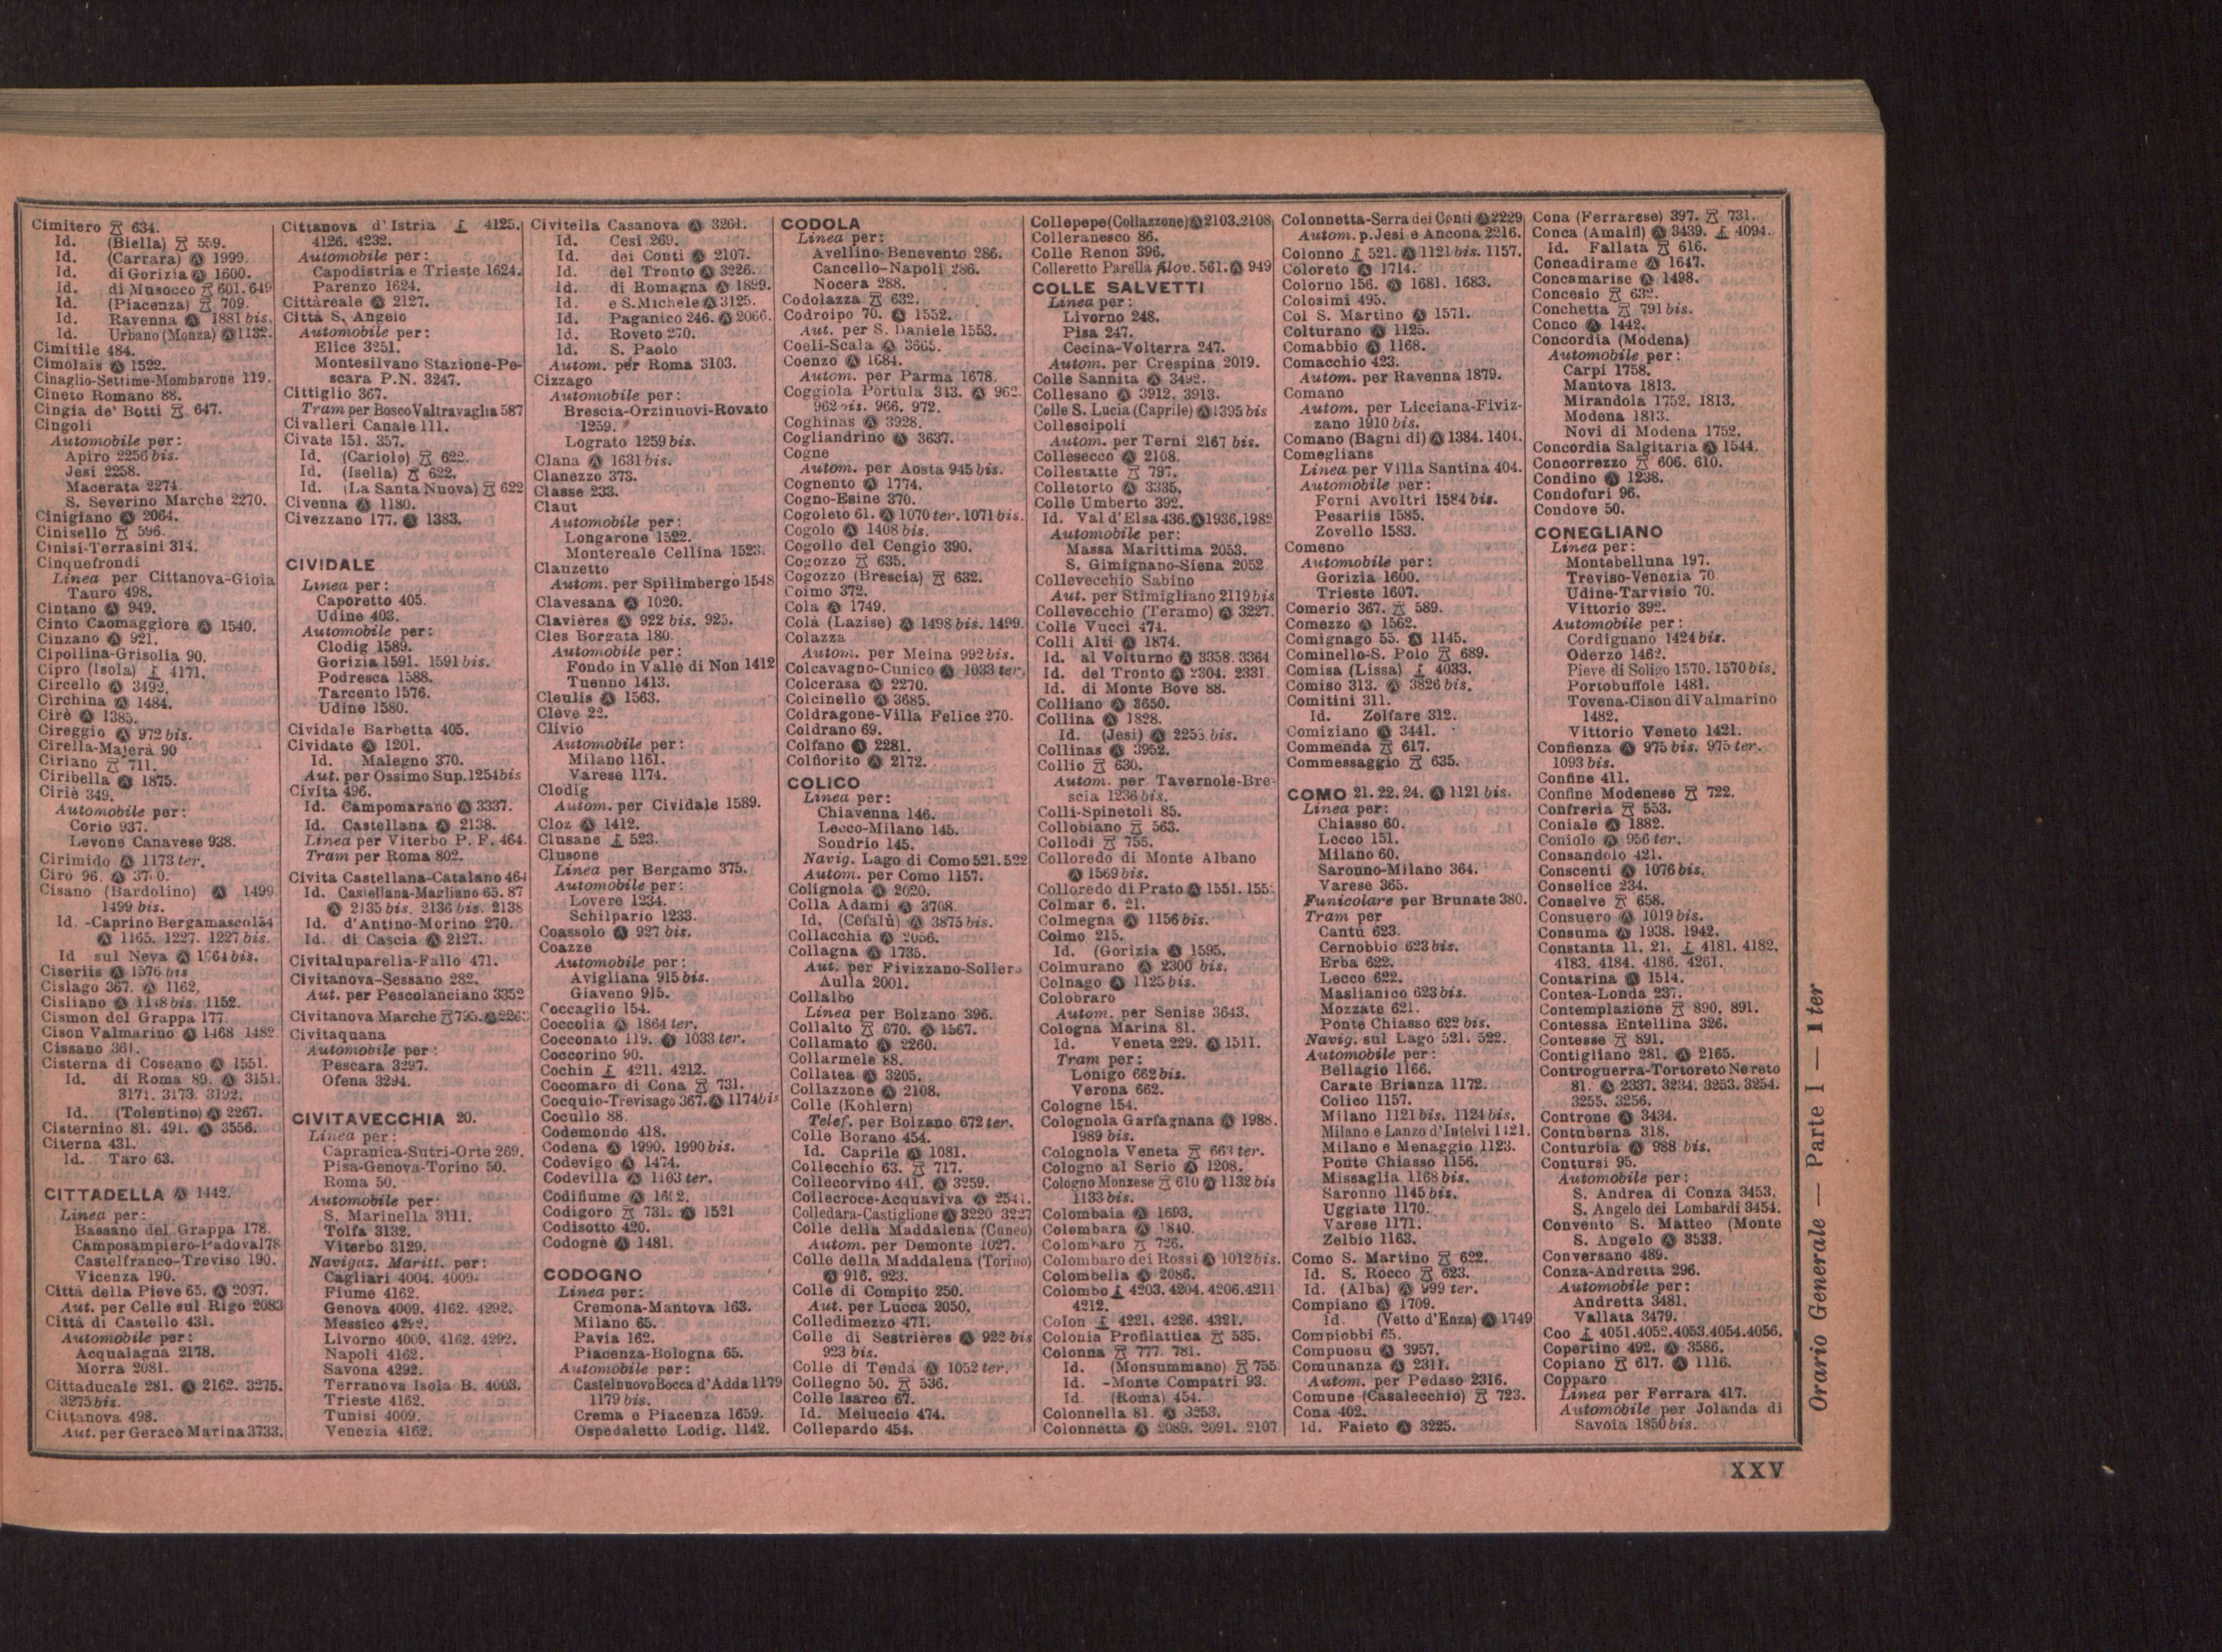 Cimitero 634.
Id. (Biella) 559.
Id. (Carrara) Ⓐ 1999.
Id. di Gorizia Ⓐ 1600.
Id. di Musocco 601. 649
Id. (Piacenza) 709.
Id. Ravenna Ⓐ 1881 bis.
Id. Urbano (Monza) Ⓐ 1132.
Cimitile 484.
Cimolais Ⓐ 1522.
Cinaglio-Settime-Mombarone 119.
Cineto Romano 88.
Cingia de' Botti 647.
Cingoli
Automobile per:
Apiro 2256 bis.
Jesi 2258.
Macerata 2274.
S. Severino Marche 2270.
Cinigiano Ⓐ 2064.
Cinisello 596.
Cinisi-Terrasini 314.
Cinquefrondi
Linea per Cittanova-Gioia
Tauro 498.
Cintano Ⓐ 949.
Cinto Caomaggiore Ⓐ 1540.
Cinzano Ⓐ 921.
Cipollina-Grisolia 90.
Cipro (Isola) 4171.
Circello Ⓐ 3492.
Circhina Ⓐ 1484.
Cirè Ⓐ 1385.
Cireggio Ⓐ 972 bis.
Cirella-Majerà 90
Ciriano 711.
Ciribella Ⓐ 1875.
Ciriè 349.
Automobile per:
Corio 937.
Levone Canavese 938.
Cirimido Ⓐ 1173 ter.
Cirò 96. Ⓐ
Cisano (Bardolino) Ⓐ 1499
1499 bis.
Id. -Caprino Bergamasco 154
Ⓐ 1165. 1227. 1227 bis.
Id sul Neva Ⓐ 1064 bis.
Ciseriis Ⓐ 1576 bis
Cislago 367. Ⓐ 1162.
Cisliano Ⓐ 1148 bis. 1152.
Cismon del Grappa 177.
Cison Valmarino Ⓐ 1468 1482.
Cissano 361.
Cisterna di Coseano Ⓐ 1551.
Id. di Roma 89. Ⓐ 3151.
3171. 3173. 3192.
Id. (Tolentino) Ⓐ 2267.
Cisternino 81. 491. Ⓐ 3556.
Citerna 431.
Id. Taro 63.
CITTADELLA Ⓐ 1442.
Linea per:
Bassano del Grappa 178.
Camposampiero-Padova 178
Castelfranco-Treviso 190.
Vicenza 190.
Città della Pieve 65. Ⓐ 2097.
Aut. per Celle sul Rigo 2083
Città di Castello 431.
Automobile per:
Acqualagna 2178.
Morra 2081.
Cittaducale 281. Ⓐ 2162. 3275.
3275 bis.
Cittanova 498.
Aut. per Gerace Marina 3733.
Cittanova d'Istria 4125.
4126. 4232.
Automobile per:
Capodistria e Trieste 1624.
Parenzo 1624.
Cittàreale Ⓐ 2127.
Città S. Angelo
Automobile per:
Elice 3251.
Montesilvano Stazione-Pe-
scara P.N. 3247.
Cittiglio 367.
Tram per Bosco Valtravaglia 587
Civalleri Canale 111.
Civate 151. 357.
Id. (Cariolo) 622.
Id. (Isella) 622.
Id. (La Santa Nuova) 622
Civenna Ⓐ 1180.
Civezzano 177. Ⓐ 1383.
CIVIDALE
Linea per:
Caporetto 405.
Udine 403.
Automobile per:
Clodig 1589.
Gorizia 1591. 1591 bis.
Podresca 1588.
Tarcento 1576.
Udine 1580.
Cividale Barbetta 405.
Cividate Ⓐ 1201.
Id. Malegno 370.
Aut. per Ossimo Sup. 1254 bis
Civita 496.
Id. Campomarano Ⓐ 3337.
Id. Castellana Ⓐ 2138.
Linea per Viterbo P. F. 464.
Tram per Roma 802.
Civita Castellana-Catalano 464
Id. Castellana-Magliano 65. 87
Ⓐ 2135 bis. 2136 bis. 2138
Id. d'Antino-Morino 270.
Id. di Cascia Ⓐ 2127.
Civitaluparella-Fallo 471.
Civitanova-Sessano 282.
Aut. per Pescolanciano 3352
Civitanova Marche 795. Ⓐ
Civitaquana
Automobile per:
Pescara 3297.
Ofena 3294.
CIVITAVECCHIA 20.
Linea per:
Capranica-Sutri-Orte 269.
Pisa-Genova-Torino 50.
Roma 50.
Automobile per:
S. Marinella 3111.
Tolfa 3132.
Viterbo 3129.
Navigaz. Maritt. per:
Cagliari 4004. 4009.
Fiume 4162.
Genova 4009. 4162. 4292.
Messico 4292.
Livorno 4009. 4162. 4292.
Napoli 4162.
Savona 4292.
Terranova Isola B. 4003.
Trieste 4162.
Tunisi 4009.
Venezia 4162.
Civitella Casanova Ⓐ 3261.
Id. Cesi 269.
Id. dei Conti Ⓐ 2107.
Id. del Tronto Ⓐ 3226.
Id. di Romagna Ⓐ 1899.
Id. e S. Michele Ⓐ 3125.
Id. Paganico 246. Ⓐ 2066.
Id. Roveto 270.
Id. S. Paolo
Autom. per Roma 3103.
Cizzago
Automobile per:
Brescia-Orzinuovi-Rovato
1259.
Lograto 1259 bis.
Clana Ⓐ 1631 bis.
Clanezzo 373.
Classe 233.
Claut
Automobile per:
Longarone 1522.
Montereale Cellina 1523.
Clauzetto
Autom. per Spilimbergo 1548
Clavesana Ⓐ 1020.
Clavières Ⓐ 922 bis. 925.
Cles Borgata 180.
Automobile per:
Fondo in Valle di Non 1412
Tuenno 1413.
Cleulis Ⓐ 1563.
Clève 22.
Clivio
Automobile per:
Milano 1161.
Varese 1174.
Clodig
Autom. per Cividale 1589.
Cloz Ⓐ 1412.
Clusane 523.
Clusone
Linea per Bergamo 375.
Automobile per:
Lovere 1234.
Schilpario 1233.
Coassolo Ⓐ 927 bis.
Coazze
Automobile per:
Avigliana 915 bis.
Giaveno 915.
Coccaglio 154.
Coccolia Ⓐ 1864 ter.
Cocconato 119. Ⓐ 1033 ter.
Coccorino 90.
Cochin 4211. 4212.
Cocomaro di Cona 731.
Cocquio-Trevisago 367. Ⓐ 1174 bis
Cocullo 88.
Codemondo 418.
Codena Ⓐ 1990. 1990 bis.
Codevigo Ⓐ 1474.
Codevilla Ⓐ 1103 ter.
Codifiume Ⓐ
Codigoro 731. Ⓐ 1521
Codisotto 420.
Codognè Ⓐ 1481.
CODOGNO
Linea per:
Cremona-Mantova 163.
Milano 65.
Pavia 162.
Piacenza-Bologna 65.
Automobile per:
Castelnuovo Bocca d'Adda 1179
1179 bis.
Crema e Piacenza 1659.
Ospedaletto Lodig. 1142.
CODOLA
Linea per:
Avellino-Benevento 286.
Cancello-Napoli 286.
Nocera 288.
Codolazza 632.
Codroipo 70. Ⓐ 1552.
Aut. per S. Daniele 1553.
Coeli-Scala Ⓐ 3665.
Coenzo Ⓐ 1684.
Autom. per Parma 1678.
Coggiola Portula 343. Ⓐ 962.
962 bis. 966. 972.
Coghinas Ⓐ 3928.
Cogliandrino Ⓐ 3637.
Cogne
Autom. per Aosta 945 bis.
Cognento Ⓐ 1774.
Cogno-Esine 370.
Cogoleto 61. Ⓐ 1070 ter. 1071 bis.
Cogolo Ⓐ 1408 bis.
Cogollo del Cengio 390.
Cogozzo 635.
Cogozzo (Brescia) 632.
Coimo 372.
Cola Ⓐ 1749.
Colà (Lazise) Ⓐ 1498 bis. 1499.
Colazza
Autom. per Meina 992 bis.
Colcavagno-Cunico Ⓐ 1033 ter.
Colcerasa Ⓐ 2270.
Colcinello Ⓐ 3685.
Coldragone-Villa Felice 270.
Coldrano 69.
Colfano Ⓐ 2281.
Colfiorito Ⓐ 2172.
COLICO
Linea per:
Chiavenna 146.
Lecco-Milano 145.
Sondrio 145.
Navig. Lago di Como 521. 522
Autom. per Como 1157.
Colignola Ⓐ 2020.
Colla Adami Ⓐ 3708.
Id. (Cefalù) Ⓐ 3875 bis.
Collacchia Ⓐ 2056.
Collagna Ⓐ 1735.
Aut. per Fivizzano-Soliera
Aulla 2001.
Collalbo
Linea per Bolzano 396.
Collalto 670. Ⓐ 1567.
Collamato Ⓐ 2260.
Collarmele 88.
Collatea Ⓐ 3205.
Collazzone Ⓐ 2108.
Colle (Kohlern)
Telef. per Bolzano 672 ter.
Colle Borano 454.
Id. Caprile Ⓐ 1081.
Collecchio 63. 717.
Collecorvino 441. Ⓐ 3259.
Collecroce-Acquaviva Ⓐ 2541.
Colledara-Castiglione Ⓐ 3220 3227
Colle della Maddalena (Cuneo)
Autom. per Demonte 1027.
Colle della Maddalena (Torino)
Ⓐ 916. 923.
Colle di Compito 250.
Aut. per Lucca 2050.
Colledimezzo 471.
Colle di Sestrières Ⓐ 922 bis
923 bis.
Colle di Tenda Ⓐ 1052 ter.
Collegno 50. 536.
Colle Isarco 67.
Id. Meluccio 474.
Collepardo 454.
Collepepe (Collazzone) Ⓐ 2103. 2108
Colleranesco 86.
Colle Renon 396.
Colleretto Parella filov. 561. Ⓐ 949
COLLE SALVETTI
Linea per:
Livorno 248.
Pisa 247.
Cecina-Volterra 247.
Autom. per Crespina 2019.
Colle Sannita Ⓐ 3492.
Collesano Ⓐ 3912. 3913.
Colle S. Lucia (Caprile) Ⓐ 1395 bis
Collescipoli
Autom. per Terni 2167 bis.
Collesecco Ⓐ 2108.
Collestatte 797.
Colletorto Ⓐ 3335.
Colle Umberto 392.
Id. Val d'Elsa 436. Ⓐ 1936. 1982
Automobile per:
Massa Marittima 2053.
S. Gimignano-Siena 2052
Collevecchio Sabino
Aut. per Stimigliano 2119 bis
Collevecchio (Teramo) Ⓐ 3227.
Colle Vucci 474.
Colli Alti Ⓐ 1874.
Id. al Volturno Ⓐ 3358. 3364
Id. del Tronto Ⓐ 2304. 2331
Id. di Monte Bove 88.
Colliano Ⓐ 3650.
Collina Ⓐ 1828.
Id. (Jesi) Ⓐ 2253 bis.
Collinas Ⓐ 3952.
Collio 630.
Autom. per Tavernole-Bre-
scia 1236 bis.
Colli-Spinetoli 85.
Collobiano 563.
Collodi 755.
Colloredo di Monte Albano
Ⓐ 1569 bis.
Colloredo di Prato Ⓐ 1551.
Colmar 6. 21.
Colmegna Ⓐ 1156 bis.
Colmo 215.
Id. (Gorizia Ⓐ 1595.
Colmurano Ⓐ 2300 bis.
Colnago Ⓐ 1125 bis.
Colobraro
Autom. per Senise 3643.
Cologna Marina 81.
Id. Veneta 229. Ⓐ 1511.
Tram per:
Lonigo 662 bis.
Verona 662.
Cologne 154.
Colognola Garfagnana Ⓐ 1988.
1989 bis.
Colognola Veneta 663 ter.
Cologno al Serio Ⓐ 1208.
Cologno Monzese 610 Ⓐ 1132 bis
1133 bis.
Colombaia Ⓐ 1693.
Colombara Ⓐ 1840.
Colombaro 726.
Colombaro dei Rossi Ⓐ 1012 bis.
Colombella Ⓐ 2086.
Colombo 4203. 4204. 4206. 4211
4212.
Colon 4221. 4226. 4321.
Colonia Profilattica 535.
Colonna 777. 781.
Id. (Monsummano) 755
Id. -Monte Compatri 93.
Id. (Roma) 454.
Colonnella 81. Ⓐ 3253.
Colonnetta Ⓐ 2089. 2091. 2107
Colonnetta-Serra dei Conti Ⓐ 2229
Autom. p. Jesi e Ancona 2216.
Colonno 521. Ⓐ 1121 bis. 1157.
Coloreto Ⓐ 1714.
Colorno 156. Ⓐ 1681. 1683.
Colosimi 495.
Col S. Martino Ⓐ 1571.
Colturano Ⓐ 1125.
Comabbio Ⓐ 1168.
Comacchio 423.
Autom. per Ravenna 1879.
Comano
Autom. per Licciana-Fiviz-
zano 1910 bis.
Comano (Bagni di) Ⓐ 1384. 1404.
Comeglians
Linea per Villa Santina 404.
Automobile per:
Forni Avoltri 1584 bis.
Pesariis 1585.
Zovello 1583.
Comeno
Automobile per:
Gorizia 1600.
Trieste 1607.
Comerio 367. 589.
Comezzo Ⓐ 1562.
Comignago 55. Ⓐ 1145.
Cominello-S. Polo 689.
Comisa (Lissa) 4033.
Comiso 313. Ⓐ 3826 bis.
Comitini 311.
Id. Zolfare 312.
Comiziano Ⓐ 3441.
Commenda 617.
Commessaggio 635.
COMO 21. 22. 24. Ⓐ 1121 bis.
Linea per:
Chiasso 60.
Lecco 151.
Milano 60.
Saronno-Milano 364.
Varese 365.
Funicolare per Brunate 380.
Tram per
Cantù 623.
Cernobbio 623 bis.
Erba 622.
Lecco 622.
Maslianico 623 bis.
Mozzate 621.
Ponte Chiasso 622 bis.
Navig. sul Lago 521. 522.
Automobile per:
Bellagio 1166.
Carate Brianza 1172.
Colico 1157.
Milano 1121 bis. 1124 bis.
Milano e Lanzo d'Intelvi 1121.
Milano e Menaggio 1123.
Ponte Chiasso 1156.
Missaglia 1168 bis.
Saronno 1145 bis.
Uggiate 1170.
Varese 1171.
Zelbio 1163.
Como S. Martino 622.
Id. S. Rocco 623.
Id. (Alba) Ⓐ 999 ter.
Compiano Ⓐ 1709.
Id. (Vetto d'Enza) Ⓐ 1749
Compiobbi 65.
Compuosu Ⓐ 3957.
Comunanza Ⓐ 2311.
Autom. per Pedaso 2316.
Comune (Casalecchio) 723.
Cona 402.
Id. Faieto Ⓐ 3225.
Cona (Ferrarese) 397. 731.
Conca (Amalfi) Ⓐ 3439. 4094.
Id. Fallata 616.
Concadirame Ⓐ 1647.
Concamarise Ⓐ 1498.
Concesio 632.
Conchetta 791 bis.
Conco Ⓐ 1442.
Concordia (Modena)
Automobile per:
Carpi 1758.
Mantova 1813.
Mirandola 1752. 1813.
Modena 1813.
Novi di Modena 1752.
Concordia Salgitaria Ⓐ 1544.
Concorrezzo 606. 610.
Condino Ⓐ 1238.
Condofuri 96.
Condove 50.
CONEGLIANO
Linea per:
Montebelluna 197.
Treviso-Venezia 70.
Udine-Tarvisio 70.
Vittorio 392.
Automobile per:
Cordignano 1424 bis.
Oderzo 1462.
Pieve di Soligo 1570. 1570 bis.
Portobuffole 1481.
Tovena-Cison di Valmarino
1482.
Vittorio Veneto 1421.
Confienza Ⓐ 975 bis. 975 ter.
1093 bis.
Confine 411.
Confine Modenese 722.
Confreria 553.
Coniale Ⓐ 1882.
Coniolo Ⓐ 956 ter.
Consandolo 421.
Conscenti Ⓐ 1076 bis.
Conselice 234.
Conselve 658.
Consuero Ⓐ 1019 bis.
Consuma Ⓐ 1938. 1942.
Constanta 11. 21. 4181. 4182.
4183. 4184. 4186. 4261.
Contarina Ⓐ 1514.
Contea-Londa 237.
Contemplazione 890. 891.
Contessa Entellina 326.
Contesse 891.
Contigliano 281. Ⓐ 2165.
Controguerra-Tortoreto Nereto
81. Ⓐ 2337. 3234. 3253. 3254.
3255. 3256.
Controne Ⓐ 3434.
Contuberna 318.
Conturbia Ⓐ 988 bis.
Contursi 95.
Automobile per:
S. Andrea di Conza 3453.
S. Angelo dei Lombardi 3454.
Convento S. Matteo (Monte
S. Angelo Ⓐ 3533.
Conversano 489.
Conza-Andretta 296.
Automobile per:
Andretta 3481.
Vallata 3479.
Coo 4051. 4052. 4053. 4054. 4056.
Copertino 492. Ⓐ 3586.
Copiano 617. Ⓐ 1116.
Copparo
Linea per Ferrara 417.
Automobile per Jolanda di
Savoia 1850 bis.
Orario Generale — Parte I — 1 ter
XXV